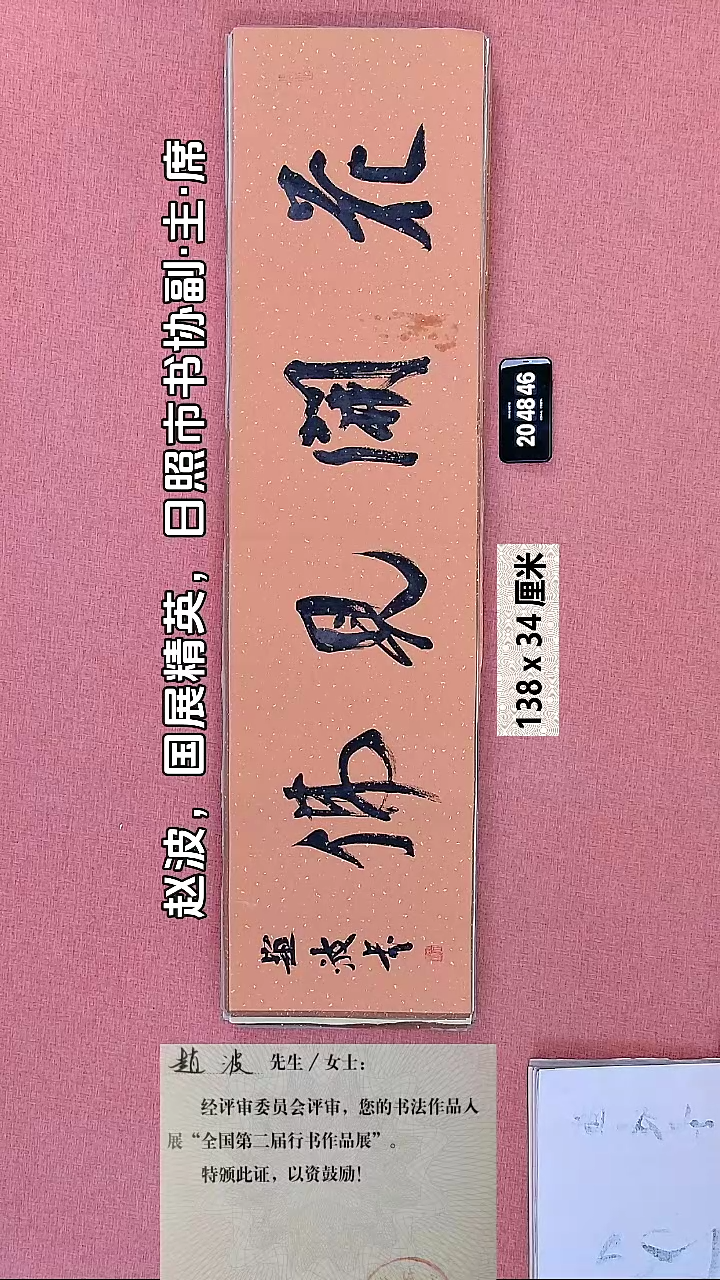 赵波，国展精英，日照市书协副·主·席
花開見佛
趙波书
20 48 46
138 x 34 厘米
趙波 先生／女士：
经评审委员会评审，您的书法作品入
展“全国第二届行书作品展”。
特颁此证，以资鼓励！